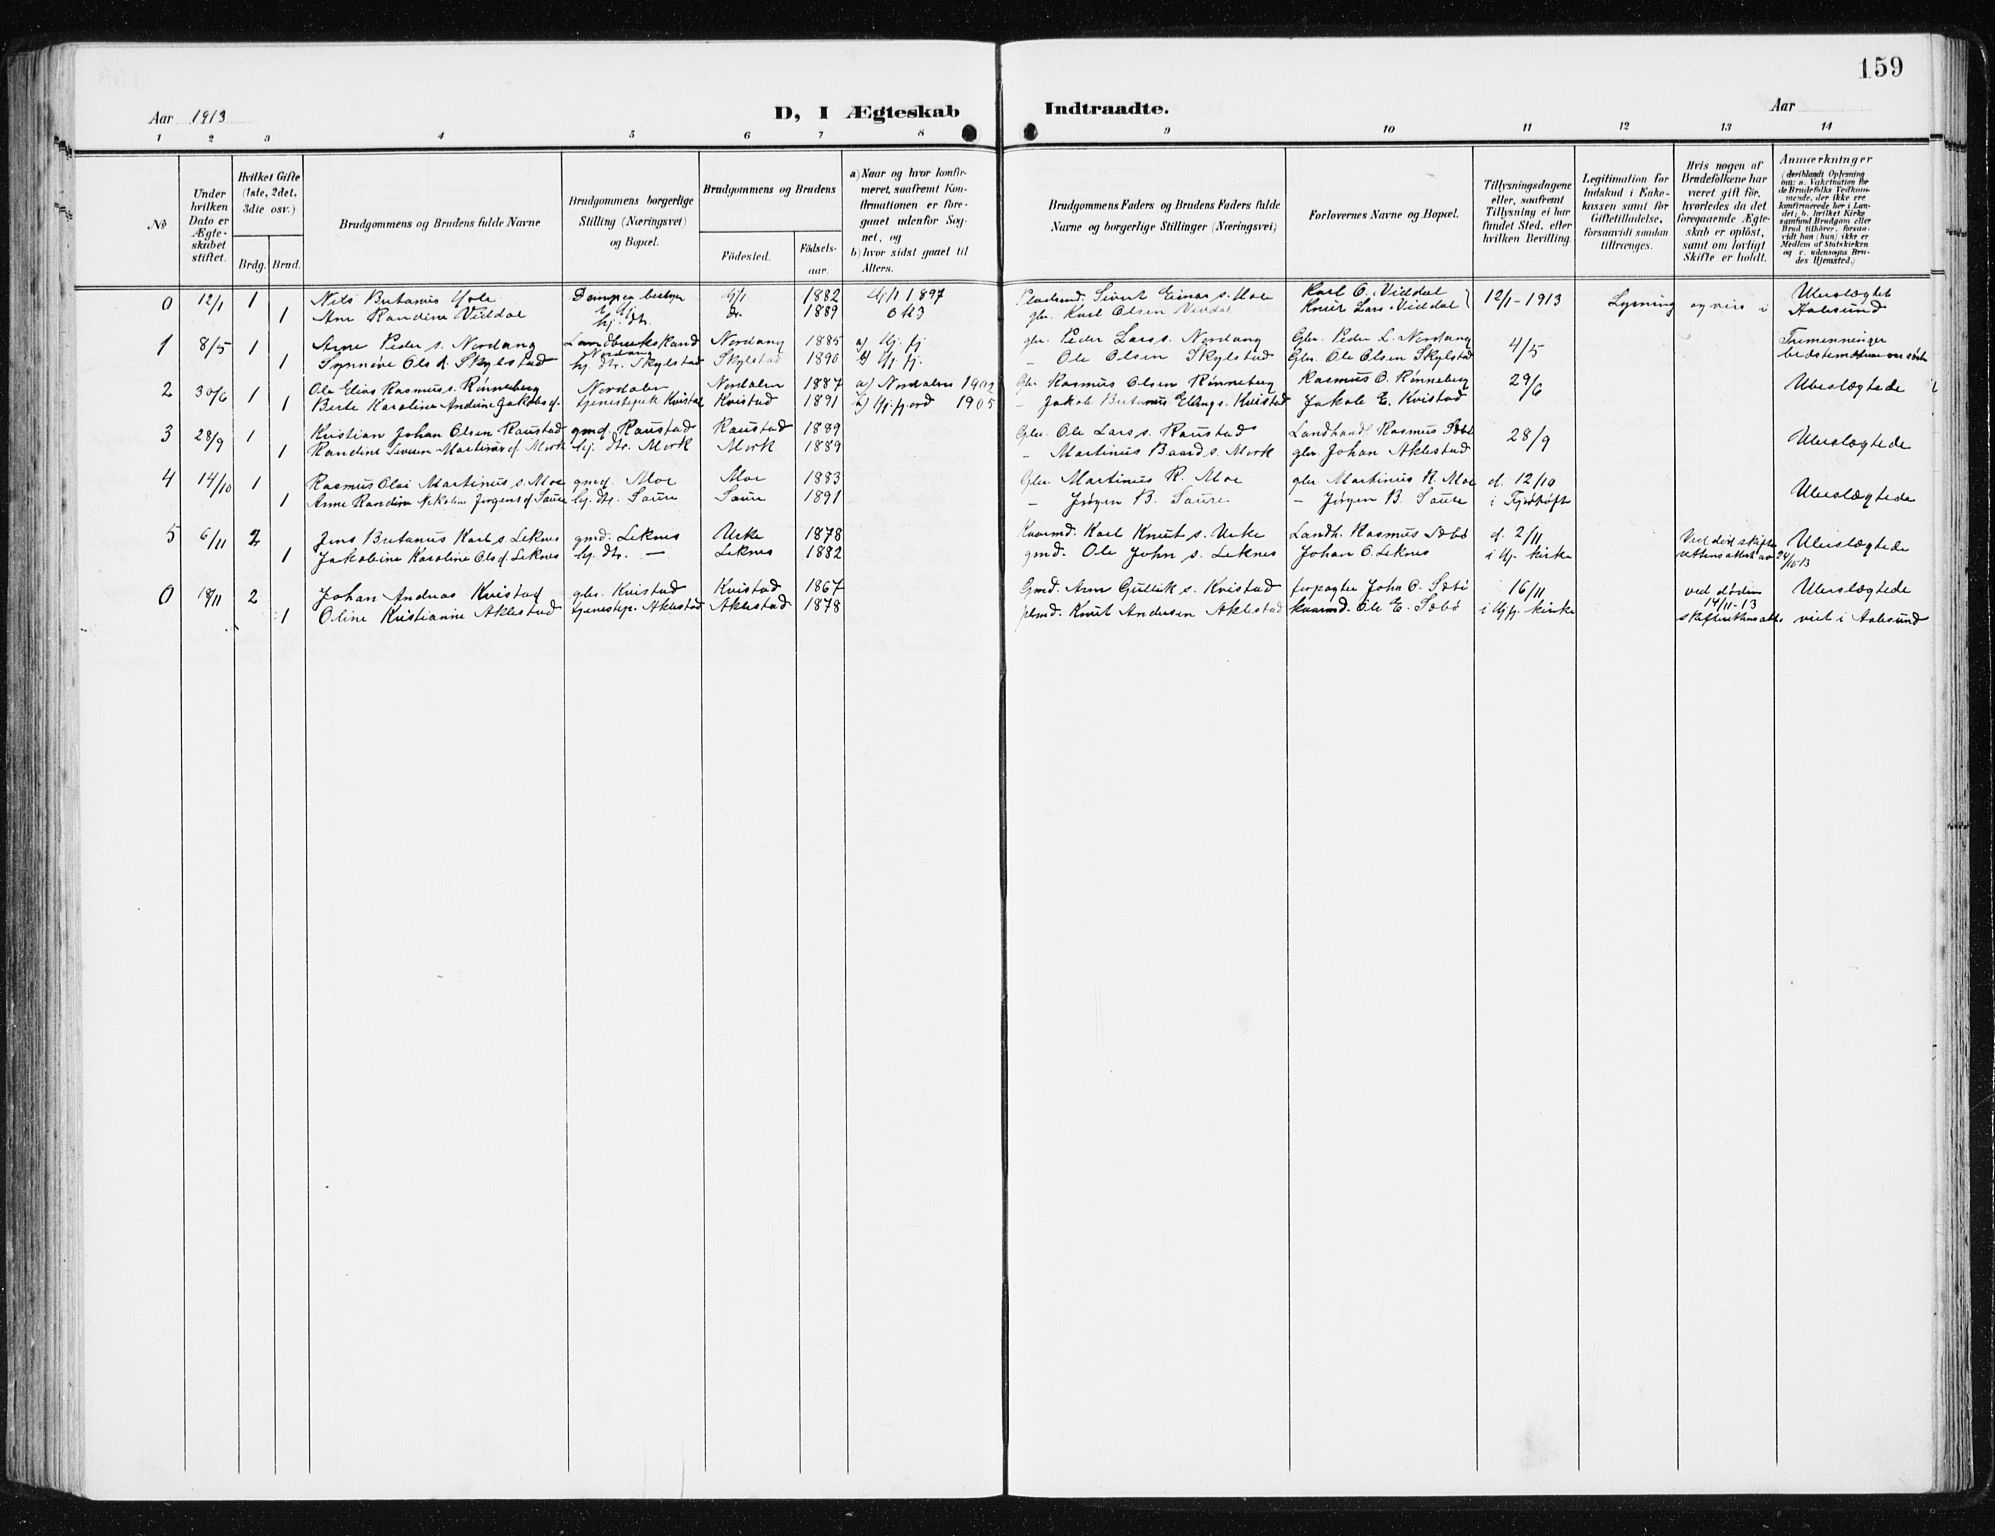 159
Aar 1913
D, I Ægteskab Indtraadte.
Aar
1 2 3 4 5 6 7 8 9 10 11 12 13 14
No
Under hvilken Dato er Ægteskabet stiftet.
Hvilket Gifte (1ste, 2det, 3die osv.)
Brdg. Brud.
Brudgommens og Brudens fulde Navne
Brudgommens borgerlige Stilling (Næringsvei) og Bopæl.
Brudgommens og Brudens
Födested.
Födselsaar.
a) Naar og hvor konfirmeret, saafremt Konfirmationen er foregaaet udenfor Sognet, og
b) hvor sidst gaaet til Alters.
Brudgommens Faders og Brudens Faders fulde Navne og borgerlige Stillinger (Næringsvei)
Forlovernes Navne og Bopæl.
Tillysningsdagene eller, saafremt Tillysning ei har fundet Sted, efter hvilken Bevilling.
Legitimation for Indskud i Enkekassen samt for Giftetilladelse, forsaavidt saadan tiltrænges.
Hvis nogen af Brudefolkene har været gift för, hvorledes da det foregaaende Ægteskab er oplöst, samt om lovligt Skifte er holdt.
Anmærkninger
(deriblandt Oplysning om: a. Vakcination for de Brudefolks Vedkommende, der ikke ere konfirmerede her i Landet; b. hvilket Kirkesamfund Brudgom eller Brud tilhører, forsaavidt han (hun) ikke er Medlem af Statskirken og c. udensogns Brudes Hjemsted.)
0 12/1 1 1882 1897 Sivert Einar s. Moe Karl O. Viddal 12/1-1913 Lysning Ubeslægtet
1 Ane Randine Viddal hj. dtr. do. 1889 gbr. Karl Olsen Viddal Lars Viddal Aalesund
1 8/5 1 Arne Peder s. Nordang Nordang 1885 a) Hj. fj. gbr. Peder Lars s. Nordang Gbr. Peder L. Nordang 4/5 Tremenninger
1 Synnøve Ols d. Skylstad hj. dtr. Skylstad Skylstad 1890 b) Hj. fj. - Ole Olsen Skylstad Gbr. Ole Olsen Skylstad
2 30/6 1 Ole Elias Rasmus s. Rønneberg Nordalen Nordalen 1887 a) Nordalen 1902 Gbr. Rasmus Olsen Rønneberg Rasmus O. Rønneberg 29/6 Ubeslægtede
1 Berte Karoline Andrine Jakobs d. Kvistad Kvistad 1891 b) Hj. fjord 1905 - Jakob Elling s. Kvistad Jakob E. Kvistad
3 28/9 1 Kristian Johan Olsen Raustad gmd. Raustad Raustad 1889 Gbr. Ole Lars s. Raustad Landhandl. Rasmus Sæbø 28/9
1 Randine Martinus d. Mork hj. dtr. Mork Mork 1889 - Martinus Baard s. Mork gbr. Johan Aklestad Ubeslægtede
4 14/10 1 Rasmus Olai Martinus s. Moe gmd. Moe Moe 1883 Gbr. Martinus R. Moe gbr. Martinus R. Moe d. 12/10
1 Anne Randine Nikoline Jørgens d. Saure hj. dtr. Saure Saure 1891 - Jørgen B. Saure - Jørgen B. Saure Ubeslægtede
5 6/11 2 Jens Bertanus Karl s. Leknes gmd. Leknes Urke 1878 Kaarmd. Karl Knut s. Urke Landh. Rasmus Sæbø d. 2/11
1 Jakobine Karoline Ols d. Leknes hj. dtr. - Leknes 1882 gmd. Ole John s. Leknes Johan O. Leknes i Hj. kirke 24/10-13 Ubeslægtede
0 18/11 2 Johan Andreas Kvistad gbr. Kvistad Kvistad 1867 Gmd. Arne Gullik s. Kvistad forpagter John O. Sæbø 16/11 ved døden 14/11-13 Ubeslægtede
1 Oline Kristianne Aklestad tjenestep. Aklestad Aklestad 1878 Knut Andersen Aklestad kaarmd. Ole E. Sæbø i Hj. kirke viet i Aalesund